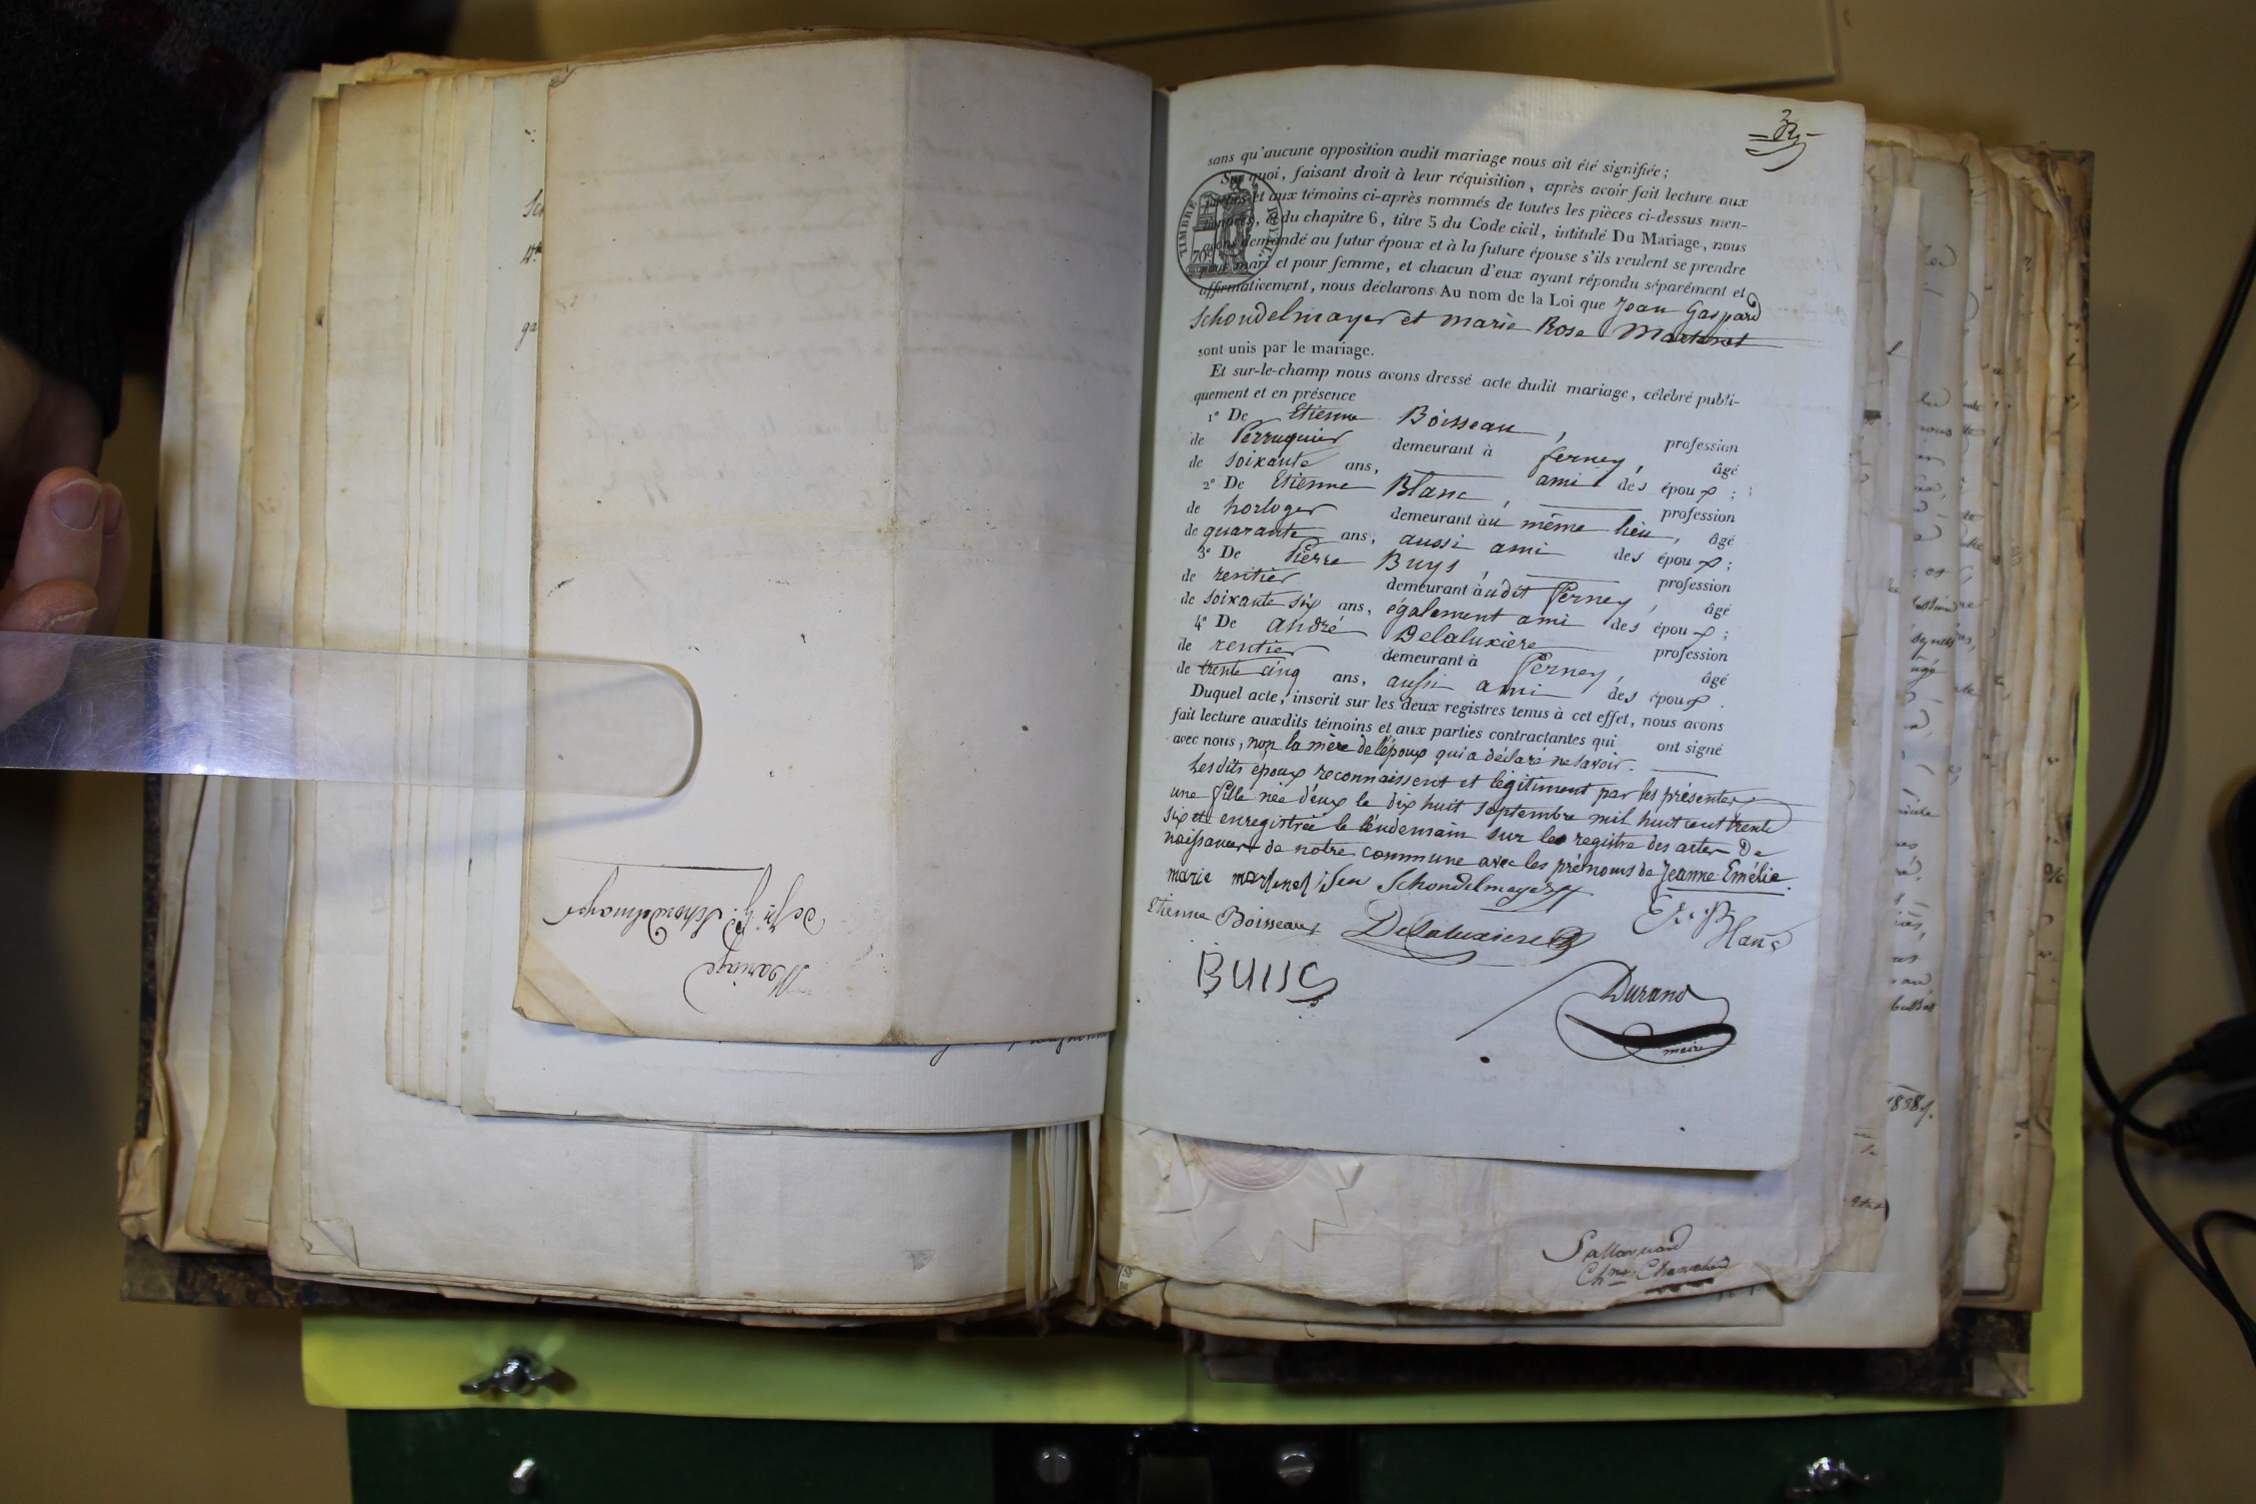 Mariage
de Jn G. Schondelmayer
sans qu'aucune opposition audit mariage nous ait été signifiée ;
Sur quoi, faisant droit à leur réquisition, après avoir fait lecture aux
parties et aux témoins ci-après nommés de toutes les pièces ci-dessus men-
tionnées, et du chapitre 6, titre 5 du Code civil, intitulé Du Mariage, nous
avons demandé au futur époux et à la future épouse s'ils veulent se prendre
pour mari et pour femme, et chacun d'eux ayant répondu séparément et
affirmativement, nous déclarons Au nom de la Loi que Jean Gaspard
Schondelmayer et marie Rose Martinet
sont unis par le mariage.
Et sur-le-champ nous avons dressé acte dudit mariage, célébré publi-
quement et en présence
1° De Etienne Boisseau, profession
de Perruquier demeurant à ferney, âgé
de soixante ans, ami des époux ;
2° De Etienne Blanc, profession
de horloger demeurant au même lieu, âgé
de quarante ans, aussi ami des époux ;
3° De Pierre Buys, profession
de rentier demeurant audit Ferney, âgé
de soixante six ans, également ami des époux ;
4° De andré Delaluxière profession
de rentier demeurant à Ferney, âgé
de trente cinq ans, aussi ami des époux.
Duquel acte, inscrit sur les deux registres tenus à cet effet, nous avons
fait lecture auxdits témoins et aux parties contractantes qui ont signé
avec nous, non la mère de l'époux qui a déclaré ne savoir.
Lesdits époux reconnaissent et légitiment par les présentes
une fille née d'eux le dix huit septembre mil huit cent trente
six et enregistrée le lendemain sur les registre des actes De
naissances de notre commune avec les prénoms de Jeanne Emélie.
marie martinet Jean Schondelmayer
Etienne Boisseau Delaluxiere Et. Blanc
BUISC
Durand
maire
TIMBRE ROYAL
70
1838.